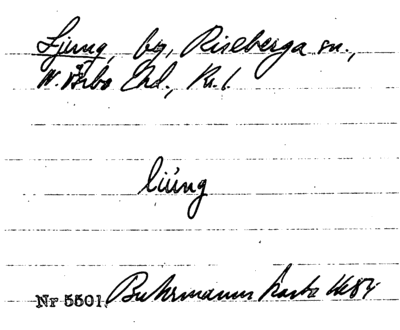 Ljung, by, Riseberga sn.,
N. Åsbo hd., Kr. l.
liúng
Nr 5501 Buhrmanns karta 1684